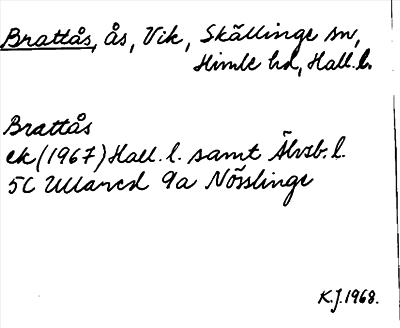 Brattås, ås, Vik, Skällinge sn,
Himle hd, Hall. l.
Brattås
ek (1967) Hall. l. samt Älvsb. l.
5C Ullared 9a Nösslinge
K.J. 1968.